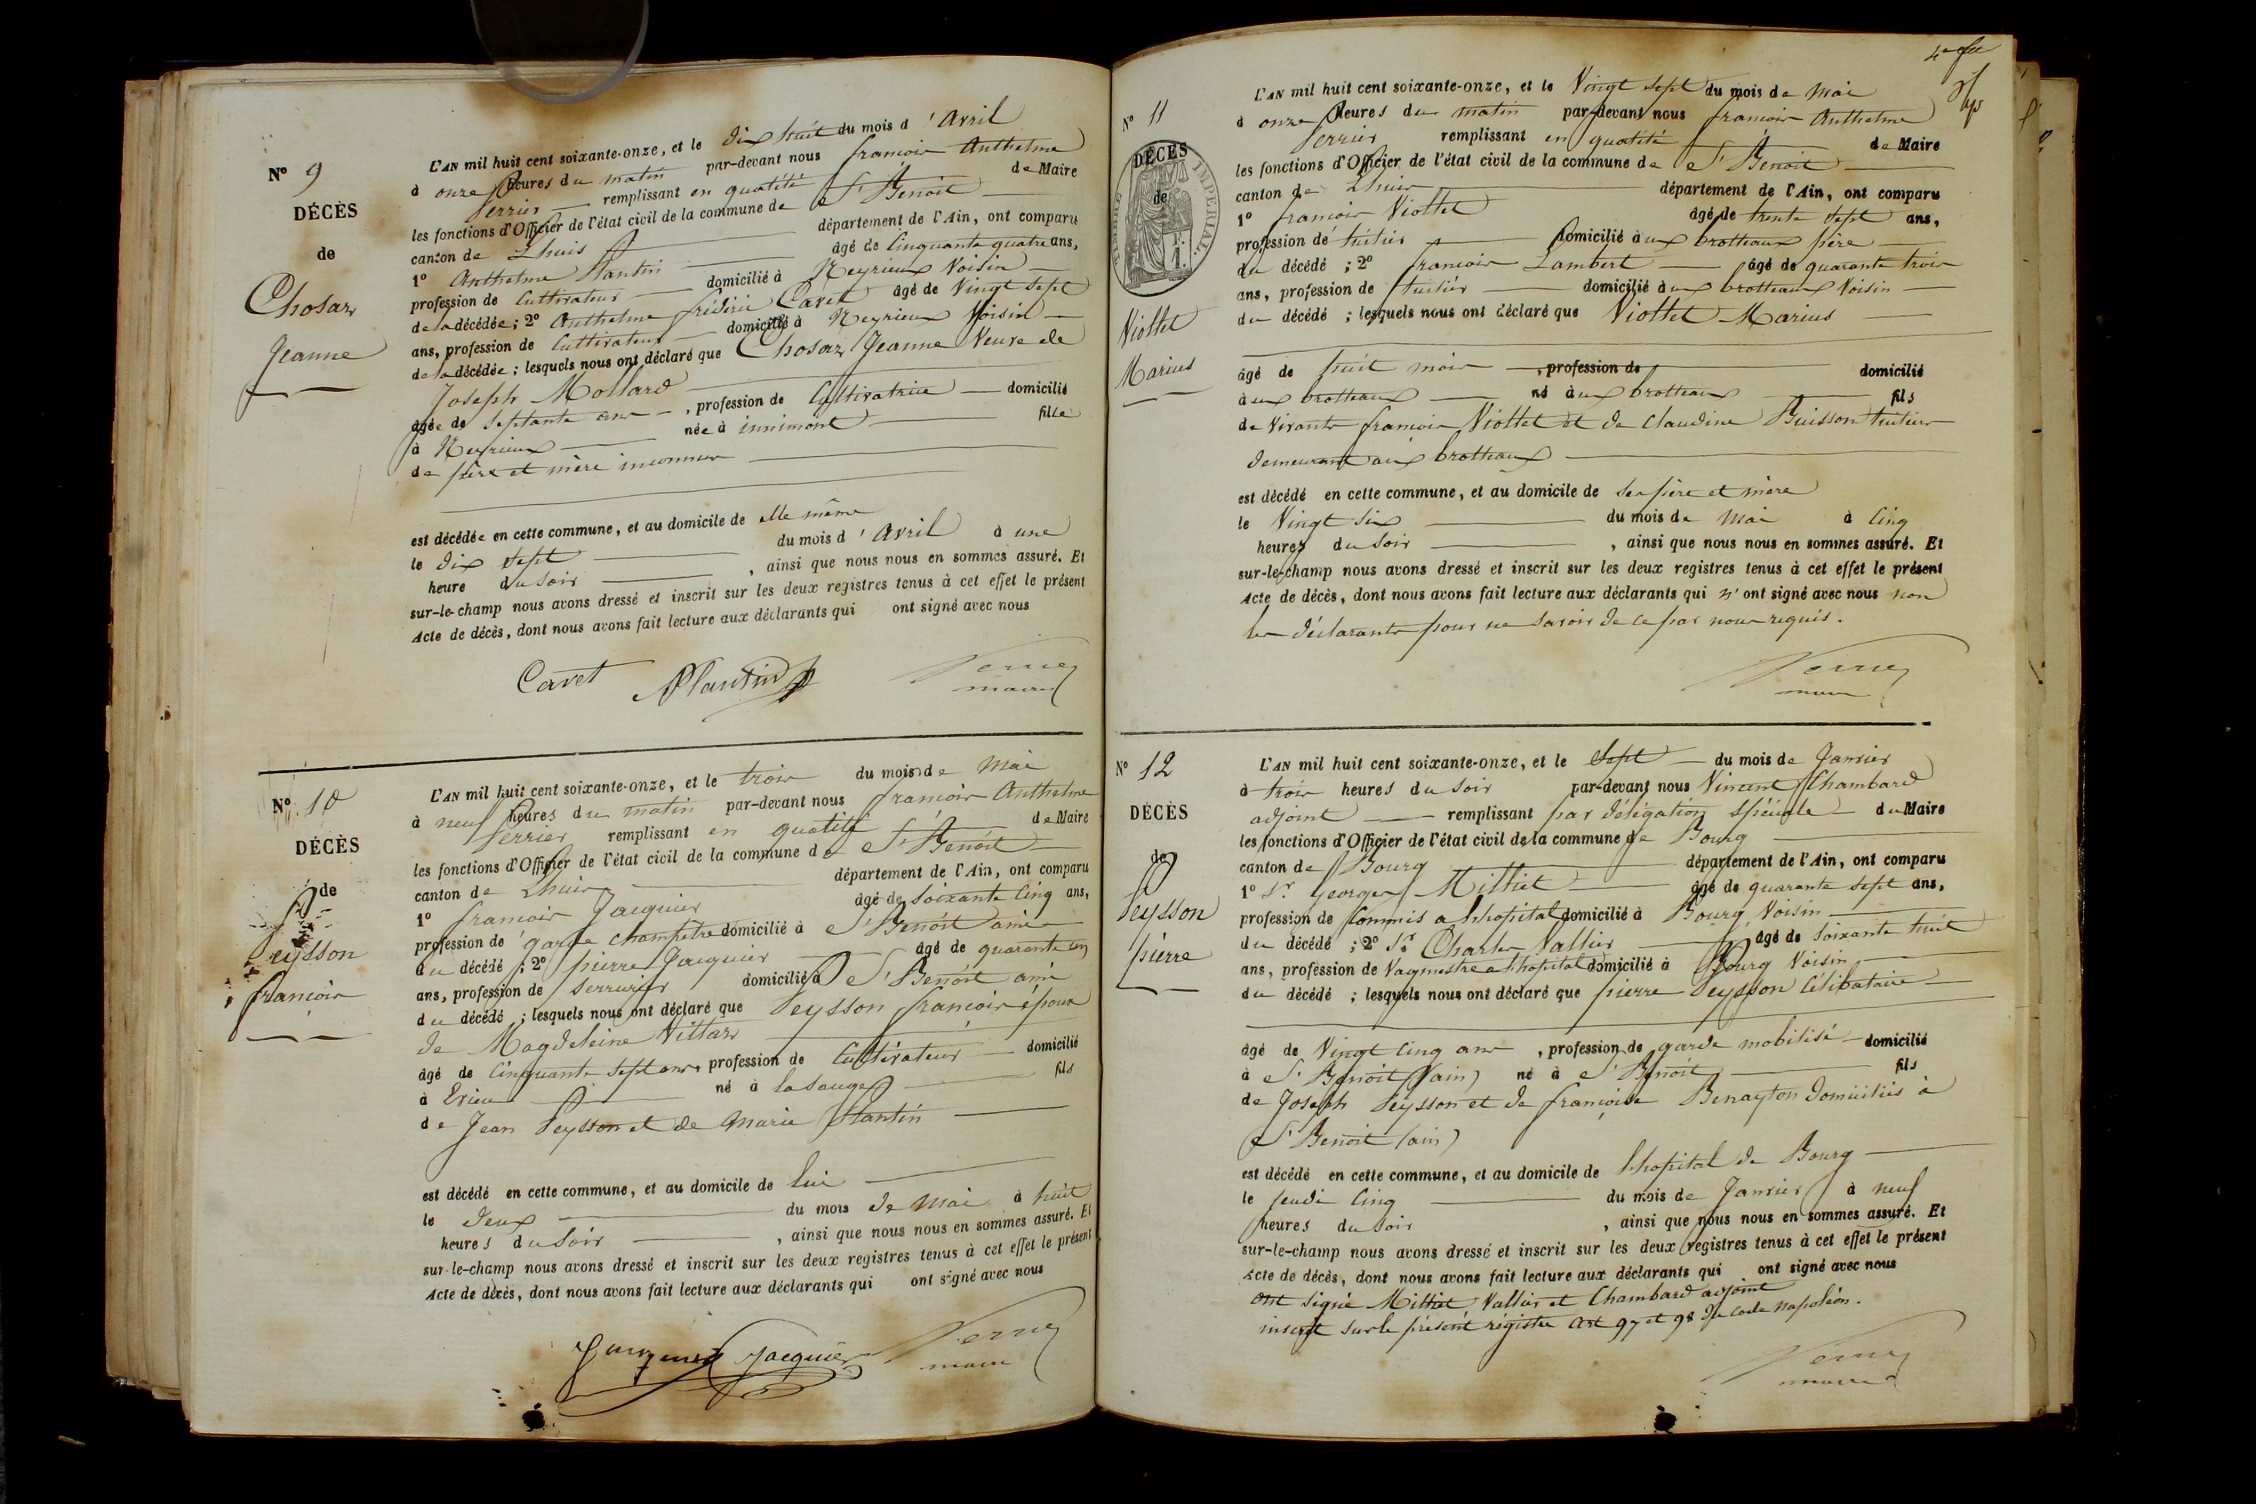 Nº 9
DÉCÈS
de
Chosaz
Jeanne
L'AN mil huit cent soixante-onze, et le Dix huit du mois d'Avril
à onze heures du matin par-devant nous françois Anthelme
remplissant en qualité de Maire
les fonctions d'Officier de l'état civil de la commune de St Benoit
canton de Lhuis département de l'Ain, ont comparu
1º Anthelme Plantin âgé de Cinquante quatre ans,
profession de Cultivateur domicilié à Neyrieux Voisin
de la décédée ; 2º Anthelme frédéric Cavet âgé de Vingt sept
ans, profession de Cultivateur domicilié à Neyrieux Voisin
de la décédée ; lesquels nous ont déclaré que Chosaz Jeanne Veuve de
Joseph Mollard
âgée de septante ans, profession de Cultivatrice domicilié
à Neyrieux née à innimont fille
de père et mère inconnus
est décédée en cette commune, et au domicile de elle même
le Dix sept du mois d'Avril à une
heure du soir, ainsi que nous nous en sommes assuré. Et
sur-le-champ nous avons dressé et inscrit sur les deux registres tenus à cet effet le présent
Acte de décès, dont nous avons fait lecture aux déclarants qui ont signé avec nous
Cavet Plantin
maire
Nº 10
DÉCÈS
de
Peysson
françois
L'AN mil huit cent soixante-onze, et le trois du mois de Mai
à neuf heures du matin par-devant nous françois Anthelme
remplissant en qualité de Maire
les fonctions d'Officier de l'état civil de la commune de St Benoit
canton de Lhuis département de l'Ain, ont comparu
1º françois Jacquier âgé de Soixante Cinq ans,
profession de garde champêtre domicilié à St Benoit ami
du décédé ; 2º pierre Jacquier âgé de quarante un
ans, profession de Serrurier domicilié à St Benoit ami
du décédé ; lesquels nous ont déclaré que Peysson françois époux
de Magdeleine Villaz
âgé de Cinquante Sept ans, profession de Cultivateur domicilié
à Evieu né à la Sauge fils
de Jean Peysson et de Marie Plantin
est décédé en cette commune, et au domicile de lui
le Deux du mois de Mai à huit
heures du Soir, ainsi que nous nous en sommes assuré. Et
sur-le-champ nous avons dressé et inscrit sur les deux registres tenus à cet effet le présent
Acte de décès, dont nous avons fait lecture aux déclarants qui ont signé avec nous
Jacquier Jacquier
maire
Nº 11
DÉCÈS
de
TIMBRE IMPERIAL
Viollet
Marius
L'AN mil huit cent soixante-onze, et le Vingt sept du mois de Mai
à onze heures du matin par-devant nous françois Anthelme
remplissant en qualité de Maire
les fonctions d'Officier de l'état civil de la commune de St Benoit
canton de Lhuis département de l'Ain, ont comparu
1º françois Viollet âgé de trente sept ans,
profession de tuilier domicilié aux brotteaux père
du décédé ; 2º françois Lambert âgé de quarante trois
ans, profession de tuilier domicilié aux brotteaux Voisin
du décédé ; lesquels nous ont déclaré que Viollet Marius
âgé de huit mois, profession de domicilié
aux brotteaux né aux brotteaux fils
de Vivants françois Viollet et de Claudine Buisson tuiliers
demeurant aux brotteaux
est décédé en cette commune, et au domicile de ses père et mère
le Vingt Six du mois de Mai à Cinq
heures du Soir, ainsi que nous nous en sommes assuré. Et
sur-le-champ nous avons dressé et inscrit sur les deux registres tenus à cet effet le présent
Acte de décès, dont nous avons fait lecture aux déclarants qui n'ont signé avec nous non
les déclarants pour ne Savoir de ce par nous requis.
maire
Nº 12
DÉCÈS
de
Peysson
pierre
L'AN mil huit cent soixante-onze, et le Sept du mois de Janvier
à trois heures du soir par-devant nous Vincent Chambard
adjoint remplissant par délégation Spéciale du Maire
les fonctions d'Officier de l'état civil de la commune de Bourg
canton de Bourg département de l'Ain, ont comparu
1º Sr Georges Milliet âgé de quarante sept ans,
profession de Commis a l'hôpital domicilié à Bourg Voisin
du décédé ; 2º Sr Charles Vallier âgé de Soixante huit
ans, profession de Vagmestre a l'hopital domicilié à Bourg Voisin
du décédé ; lesquels nous ont déclaré que pierre Peysson Célibataire
âgé de Vingt Cinq ans, profession de garde mobilisé domicilié
à St Benoit (ain) né à St Benoit fils
de Joseph Peysson et de françoise Benayton Domiciliés à
St Benoit (ain)
est décédé en cette commune, et au domicile de l'hopital de Bourg
le jeudi Cinq du mois de Janvier à neuf
heures du soir, ainsi que nous nous en sommes assuré. Et
sur-le-champ nous avons dressé et inscrit sur les deux registres tenus à cet effet le présent
Acte de décès, dont nous avons fait lecture aux déclarants qui ont signé avec nous
ont signé Milliet, Vallier et Chambard adjoint
inscrit sur le présent régistre art 97 et 98 du Code Napoléon.
maire